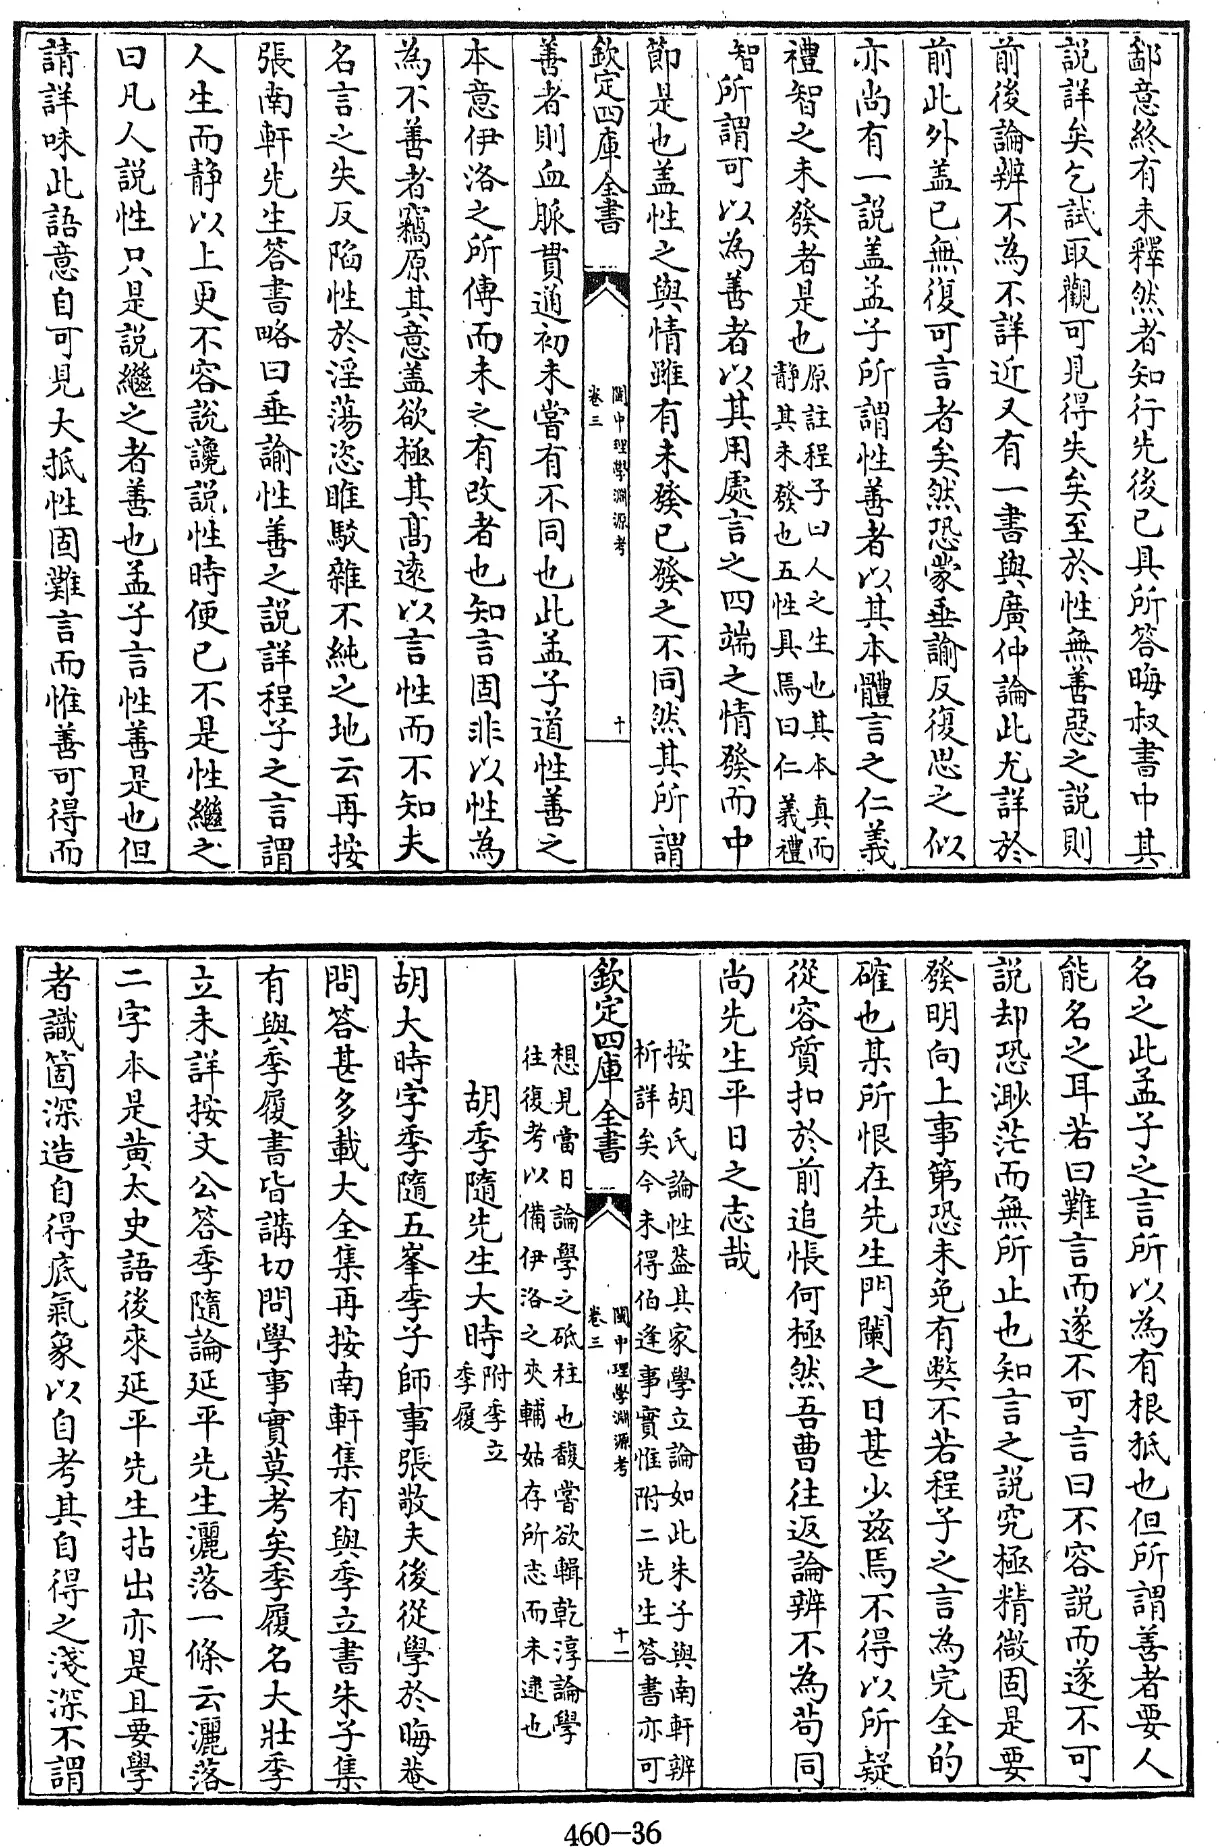 鄙意終有未釋然者知行先後已具所答晦叔書中其
說詳矣乞試取觀可見得失矣至於性無善惡之說則
前後論辨不為不詳近又有一書與廣仲論此尤詳於
前此外蓋已無復可言者矣然恐蒙垂諭反復思之似
亦尚有一說蓋孟子所謂性善者以其本體言之仁義
禮智之未發者是也原註程子曰人之生也其本真而
靜其未發也五性具焉曰仁義禮
智所謂可以為善者以其用處言之四端之情發而中
節是也蓋性之與情雖有未發已發之不同然其所謂
欽定四庫全書
閩中理學淵源考
卷三
十
善者則血脈貫通初未嘗有不同也此孟子道性善之
本意伊洛之所傳而未之有改者也知言固非以性為
為不善者竊原其意蓋欲極其高遠以言性而不知夫
名言之失反陷性於淫蕩恣睢駁雜不純之地云再按
張南軒先生答書略曰垂諭性善之說詳程子之言謂
人生而靜以上更不容說纔說性時便已不是性繼之
曰凡人說性只是說繼之者善也孟子言性善是也但
請詳味此語意自可見大抵性固難言而惟善可得而
名之此孟子之言所以為有根柢也但所謂善者要人
能名之耳若曰難言而遂不可言曰不容說而遂不可
說却恐渺茫而無所止也知言之說究極精微固是要
發明向上事第恐未免有弊不若程子之言為完全的
確也某所恨在先生門闌之日甚少茲焉不得以所疑
從容質扣於前追悵何極然吾曹往返論辨不為茍同
尚先生平日之志哉
按胡氏論性蓋其家學立論如此朱子與南軒辨
析詳矣今未得伯逢事實惟附二先生答書亦可
欽定四庫全書
閩中理學淵源考
卷三
十一
想見當日論學之砥柱也馥嘗欲輯乾淳論學
往復考以備伊洛之夾輔姑存所志而未逮也
胡季隨先生大時附季立
季履
胡大時字季隨五峯季子師事張敬夫後從學於晦菴
問答甚多載大全集再按南軒集有與季立書朱子集
有與季履書皆講切問學事實莫考矣季履名大壯季
立未詳按文公答季隨論延平先生灑落一條云灑落
二字本是黃太史語後來延平先生拈出亦是且要學
者識箇深造自得底氣象以自考其自得之淺深不謂
460-36